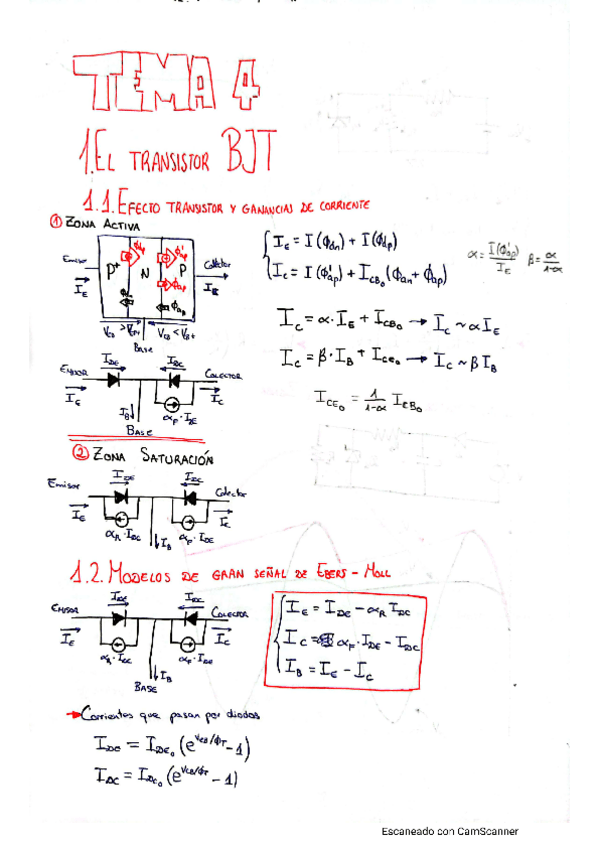 TEMA 4
1. EL TRANSISTOR BJT
1.1. EFECTO TRANSISTOR Y GANANCIAS DE CORRIENTE
① ZONA ACTIVA
Emisor
Colector
P⁺ N P
ϕdp ϕ'dp
ϕap
ϕdn ϕan
I_E I_B
Base
I_E = I(ϕdn) + I(ϕdp)
I_C = I(ϕ'dp) + I_CB₀(ϕan + ϕap)
α = I(ϕ'dp)/I_E β = α/(1-α)
I_C = α·I_E + I_CB₀ → I_C ~ αI_E
I_C = β·I_B + I_CE₀ → I_C ~ βI_B
I_CE₀ = 1/(1-α) I_CB₀
EMISOR I_DE I_DC COLECTOR
I_E I_B I_C
α_F·I_DE
BASE
② ZONA SATURACIÓN
Emisor I_DE I_DC Colector
I_E I_C
α_R·I_DC I_B α_F·I_DE
1.2. MODELOS DE GRAN SEÑAL DE EBERS - MOLL
EMISOR I_DE I_DC COLECTOR
I_E I_C
α_R·I_DC α_F·I_DE
I_B
BASE
I_E = I_DE - α_R I_DC
I_C = α_F·I_DE - I_DC
I_B = I_E - I_C
→ Corrientes que pasan por diodos
(e^(V_CB/ϕ_T) - 1)
I_DC = I_DC₀ (e^(V_CB/ϕ_T) - 1)
Escaneado con CamScanner